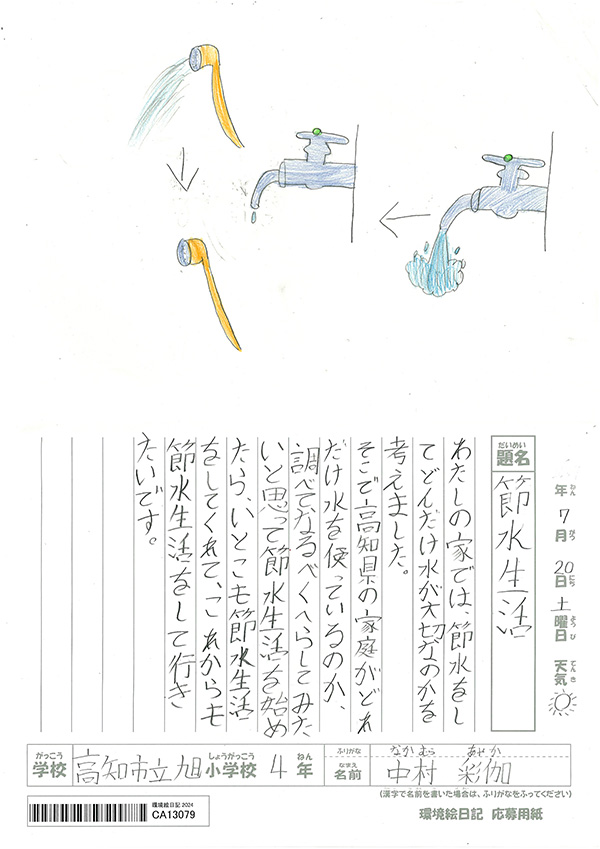 年 7月 20日 土曜日 天気
ねん がつ にち ようび てんき
だいめい
題名
節水生活
わたしの家では、節水をし
てどんだけ水が大切なのかを
考えました。
そこで高知県の家庭がどれ
だけ水を使っているのか、
調べてなるべくへらしてみた
いと思って節水生活を始め
たら、いとこも節水生活
をしてくれて、これからも
節水生活をして行き
たいです。
がっこう しょうがっこう ねん
学校 高知市立旭小学校 4年
ふりがな なかむら あやか
なまえ
名前 中村 彩伽
(漢字で名前を書いた場合は、ふりがなをふってください)
環境絵日記 2024
CA13079
環境絵日記 応募用紙